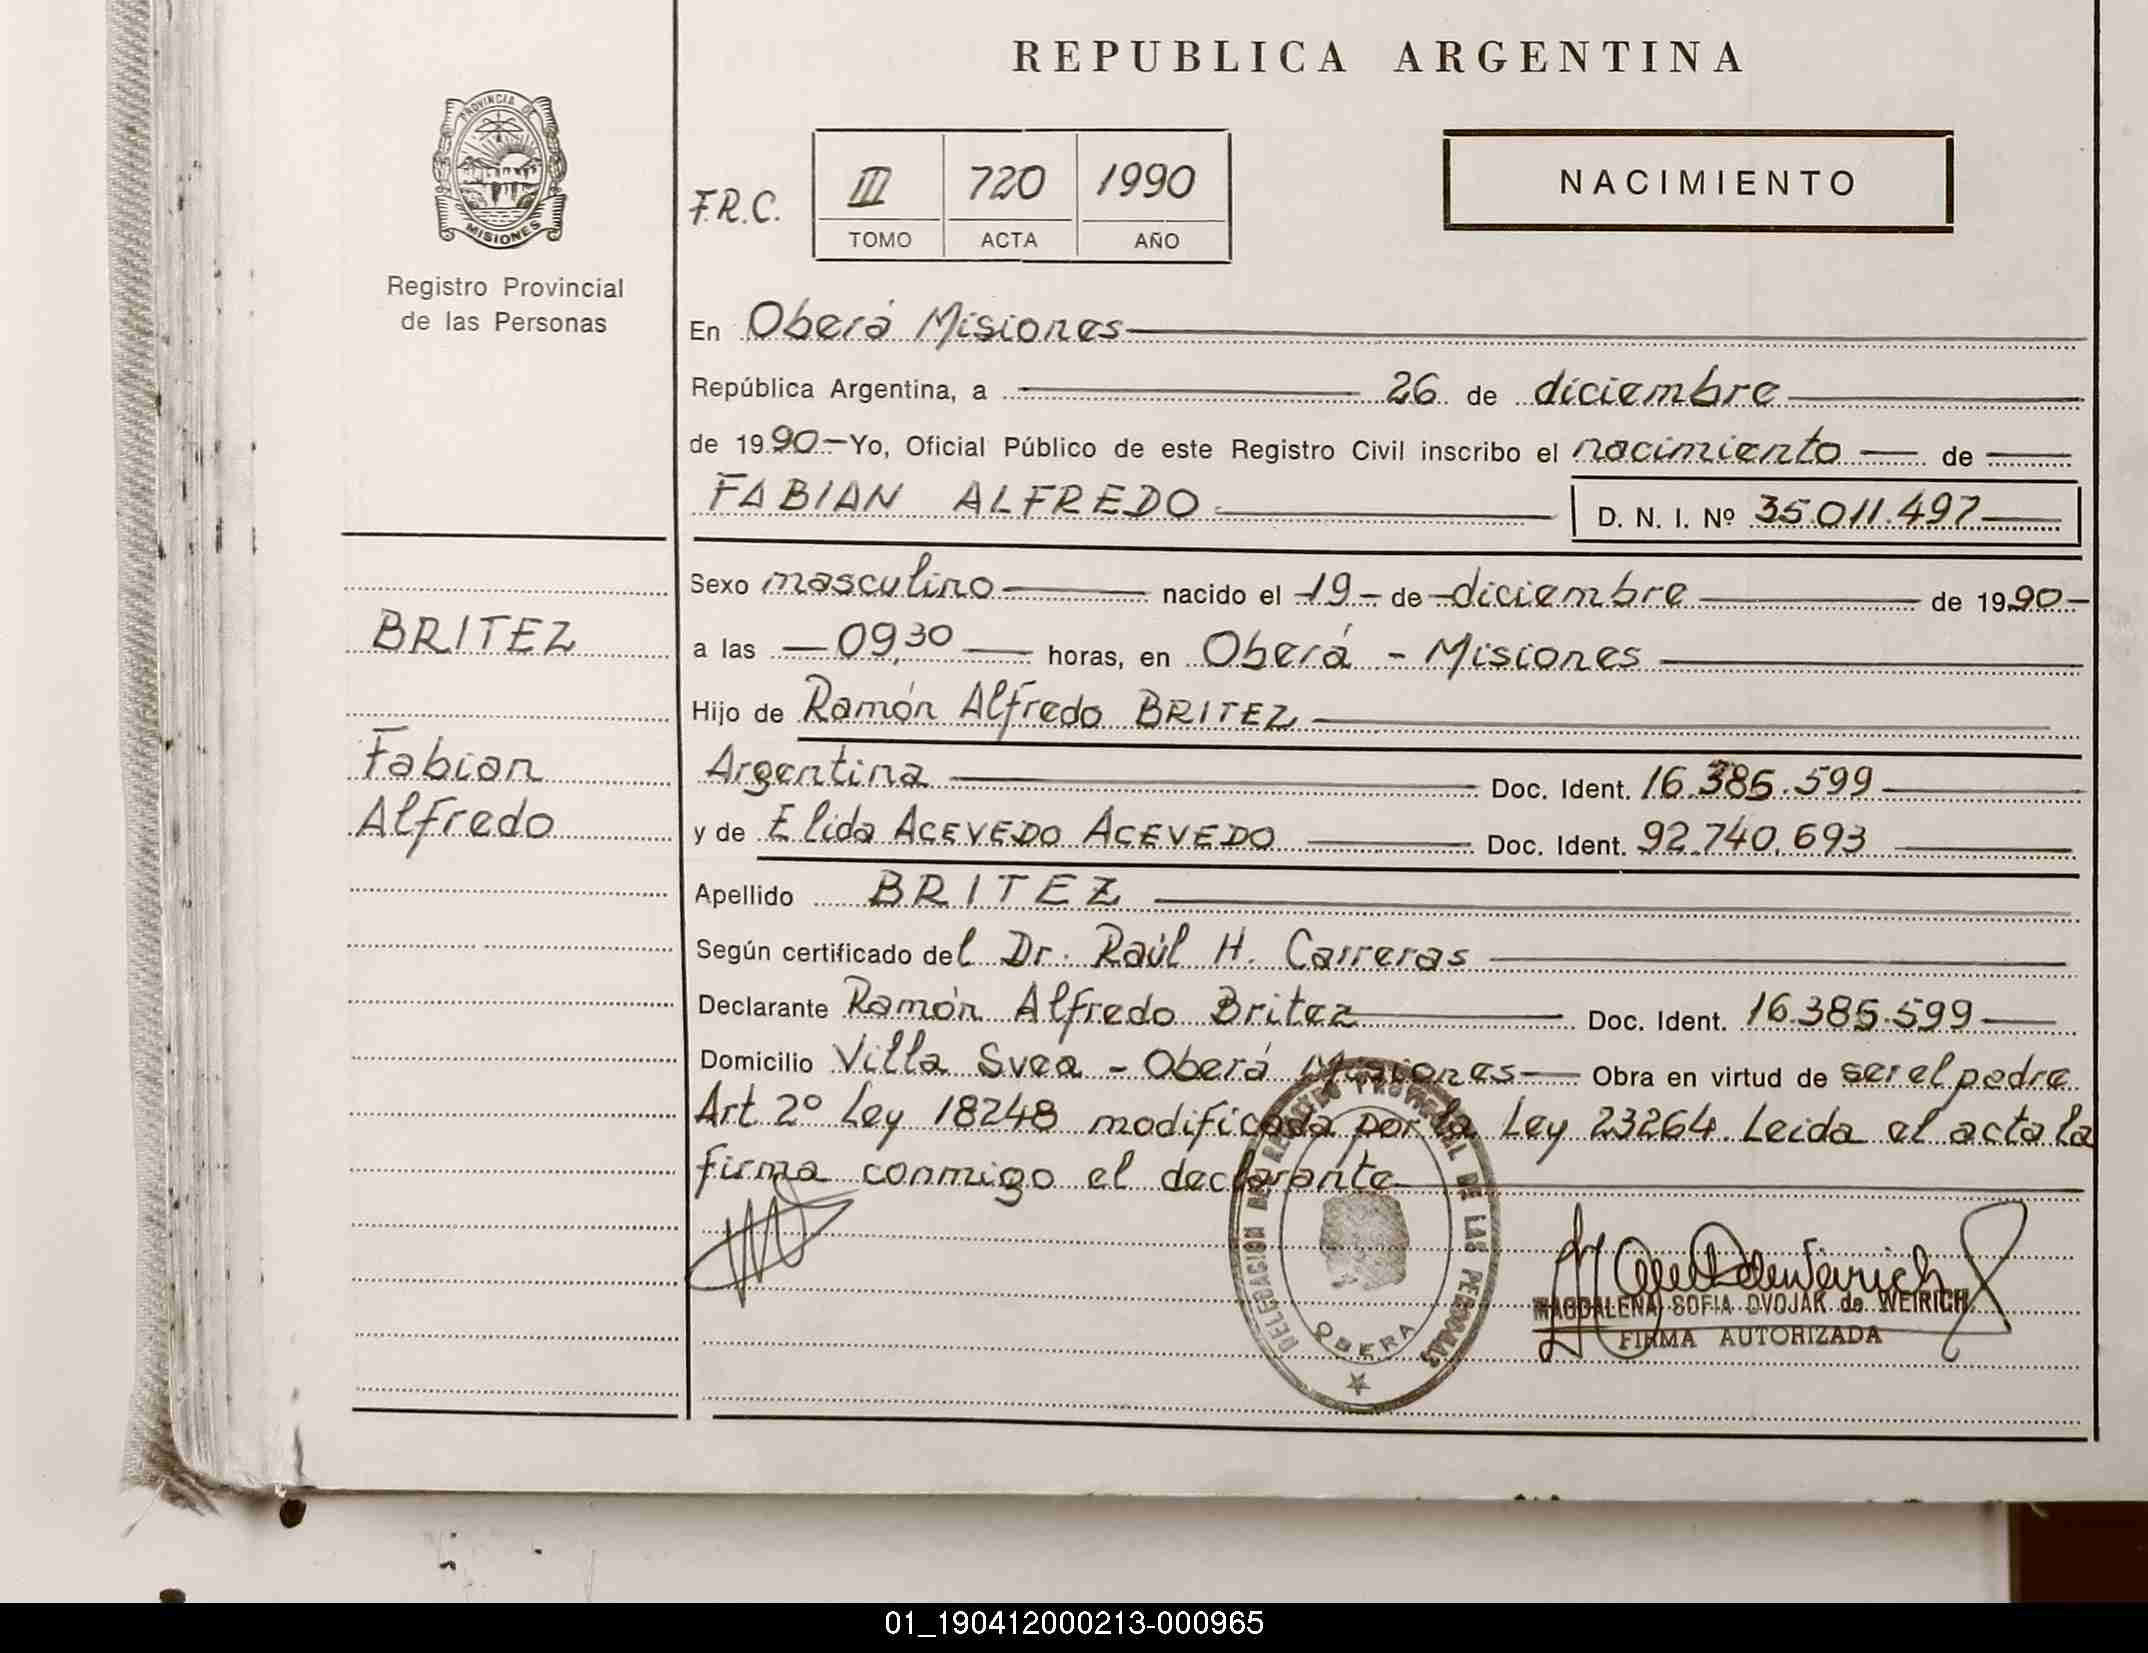 REPUBLICA ARGENTINA
PROVINCIA DE
MISIONES
Registro Provincial
de las Personas
F.R.C.
III 720 1990
TOMO ACTA AÑO
NACIMIENTO
En Oberá Misiones
República Argentina, a 26 de diciembre
de 1990 Yo, Oficial Público de este Registro Civil inscribo el nacimiento de
FABIAN ALFREDO D. N. I. Nº 35.011.497
Sexo masculino nacido el 19 de diciembre de 1990
a las 09,30 horas, en Oberá - Misiones
Hijo de Ramón Alfredo BRITEZ
Argentina Doc. Ident. 16.385.599
y de Elida ACEVEDO ACEVEDO Doc. Ident. 92.740.693
Apellido BRITEZ
Según certificado del Dr. Raúl H. Carreras
Declarante Ramón Alfredo Britez Doc. Ident. 16.385.599
Domicilio Villa Svea - Oberá Misiones Obra en virtud de ser el padre
Art. 2º Ley 18248 modificada por la Ley 23264. Leida el acta la
firma conmigo el declarante
BRITEZ
Fabian
Alfredo
DELEGACION DEL REGISTRO PROVINCIAL DE LAS PERSONAS
OBERA
MAGDALENA SOFIA DVOJAK de WEIRICH
FIRMA AUTORIZADA
01_190412000213-000965